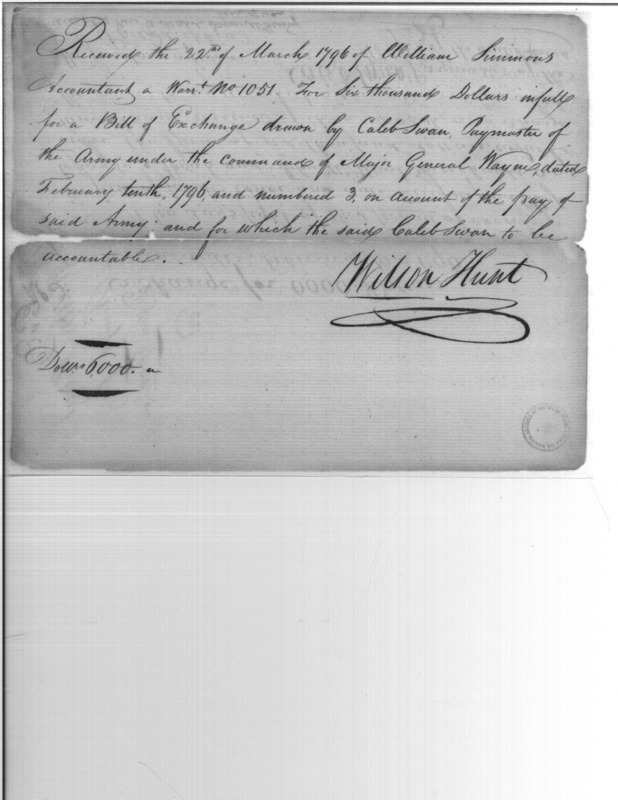 Received the 22nd of March 1796 of William Simmons
Accountant a Warrt. No 1051. For Six thousand Dollars in full
for a Bill of Exchange drawn by Caleb Swan, Paymaster of
the Army under the command of Major General Wayne, dated
February tenth, 1796, and numbered 3, on account of the pay of
said Army: and for which the said Caleb Swan to be
accountable.
Wilson Hunt
Dollrs 6,000.